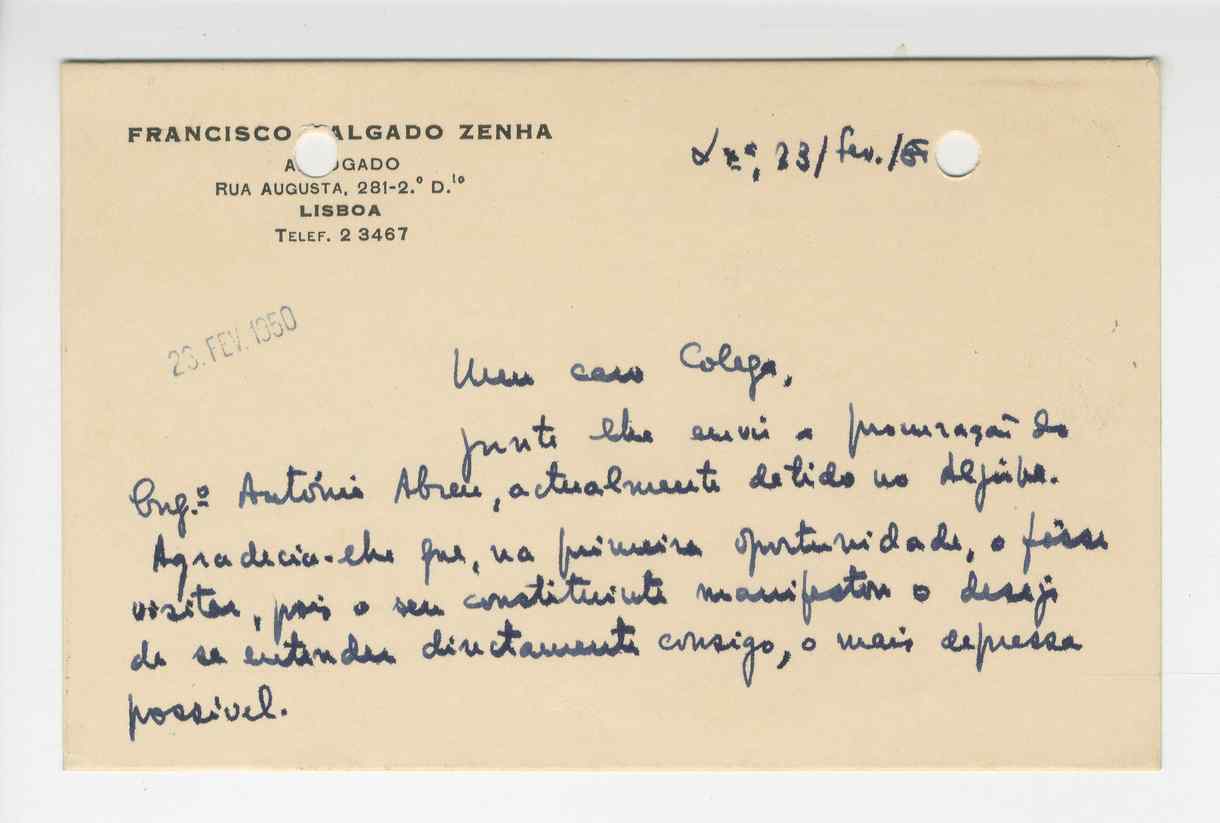 FRANCISCO SALGADO ZENHA
ADVOGADO
RUA AUGUSTA, 281-2.º D.to
LISBOA
TELEF. 2 3467
Lxª, 23/fev./
23. FEV. 1950
Meu caro Colega,
junto lhe envio a procuração do
Eng.º António Abreu, actualmente detido no Aljube.
Agradecia-lhe que, na primeira oportunidade, o fôsse
visitar, pois o seu constituinte manifestou o desejo
de se entender directamente consigo, o mais depressa
possível.